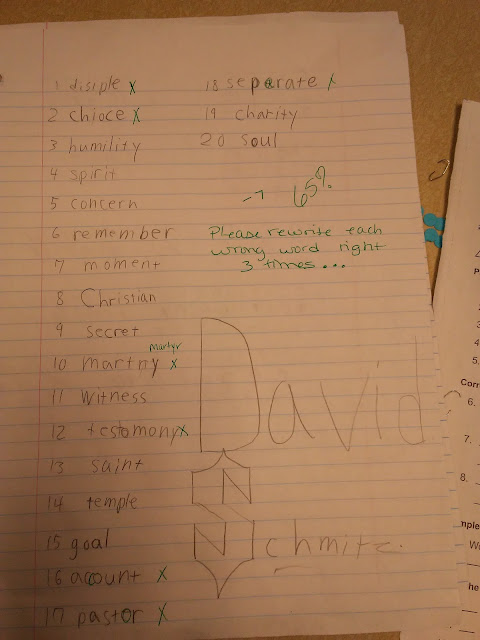 1 disiple x
2 chioce x
3 humility
4 spirit
5 concern
6 remember
7 moment
8 Christian
9 secret
martyr
10 martny x
11 Witness
12 testomony x
13 saint
14 temple
15 goal
16 acount x
17 pastor x
18 seperate x
19 charity
20 soul
-7 65%
Please rewrite each
wrong word right
3 times...
David
N
Nchmitz.
Corr
6.
7.
8.
nple
he